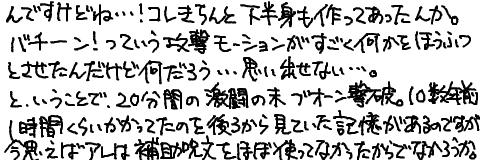 んですけどね…！コレきちんと下半身も作ってあったんか。
バチーン！っていう攻撃モーションがすごく何かをほうふつ
とさせたんだけど何だろう…思い出せない…。
と、いうことで、20分間の激闘の末ブオーン撃破。10数年前
1時間くらいかかってたのを後ろから見ていた記憶があるのですが
今思えばアレは補助呪文をほぼ使ってなかったからでなかろうか。